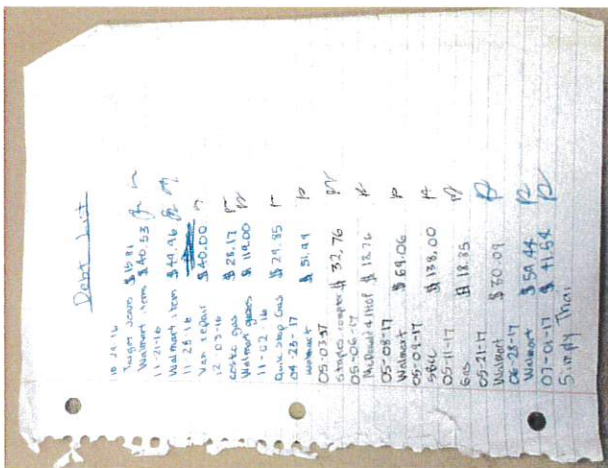 Debt List
10-24-16
Target $15.81
Walmart item $40.53
11-21-16
Walmart item $44.96
11-28-16
Van repair $40.00
12-03-16
costco gas $28.17
Walmart $114.00
11-02-16
Quik Stop Gas $29.85
04-28-17
walmart $51.91
05-03-17
Staples $32.76
05-06-17
McDonald & IHOP $18.76
05-08-17
Walmart $69.06
05-09-17
$138.00
05-11-17
Gas $18.35
05-21-17
Walmart $30.09
06-28-17
Walmart $54.44
07-01-17 $41.54
Simply Thai